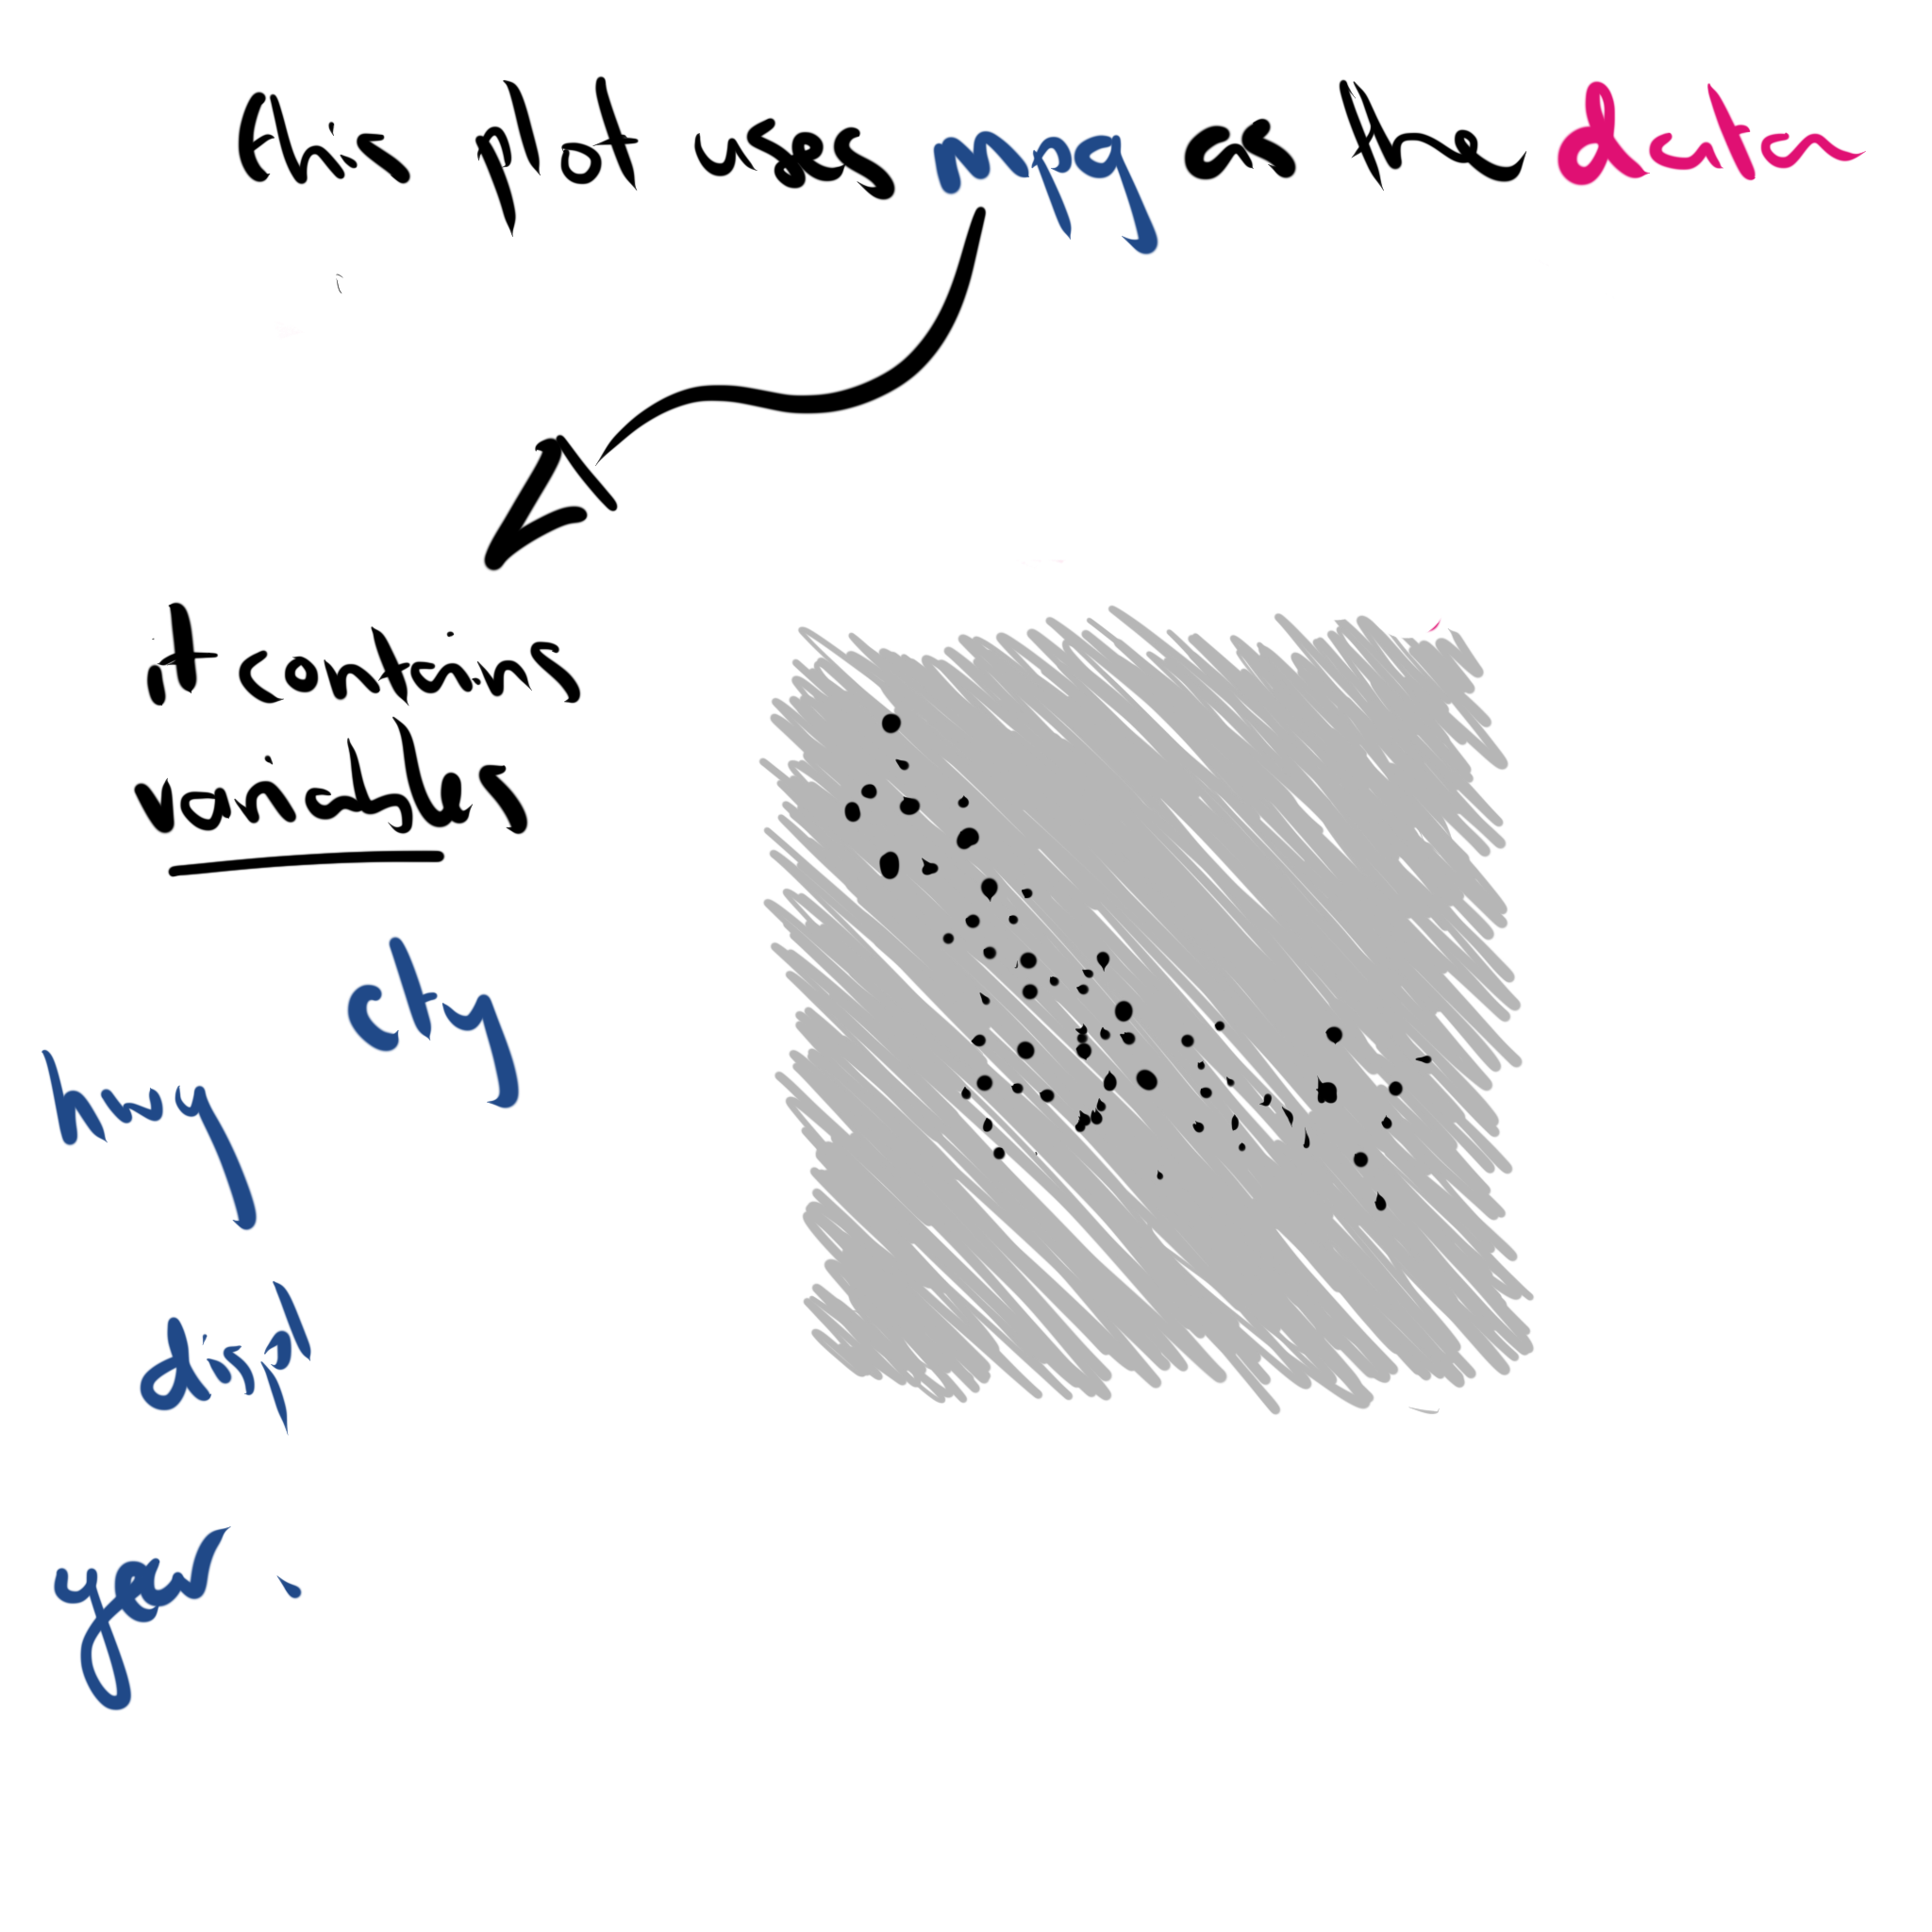 this plot uses mpg as the data
it contains
variables
cty
hwy
displ
year